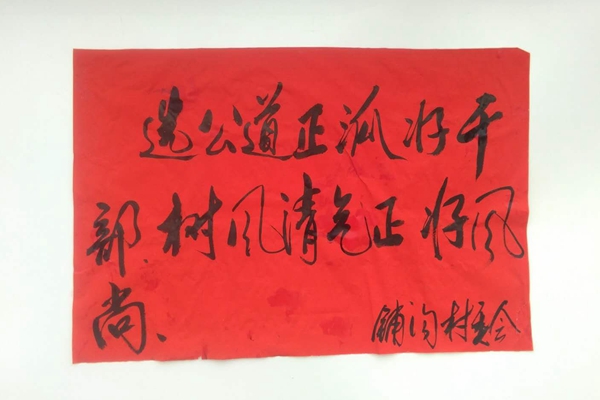 选公道正派好干
部、树风清气正好风
尚、
铺沟村委会